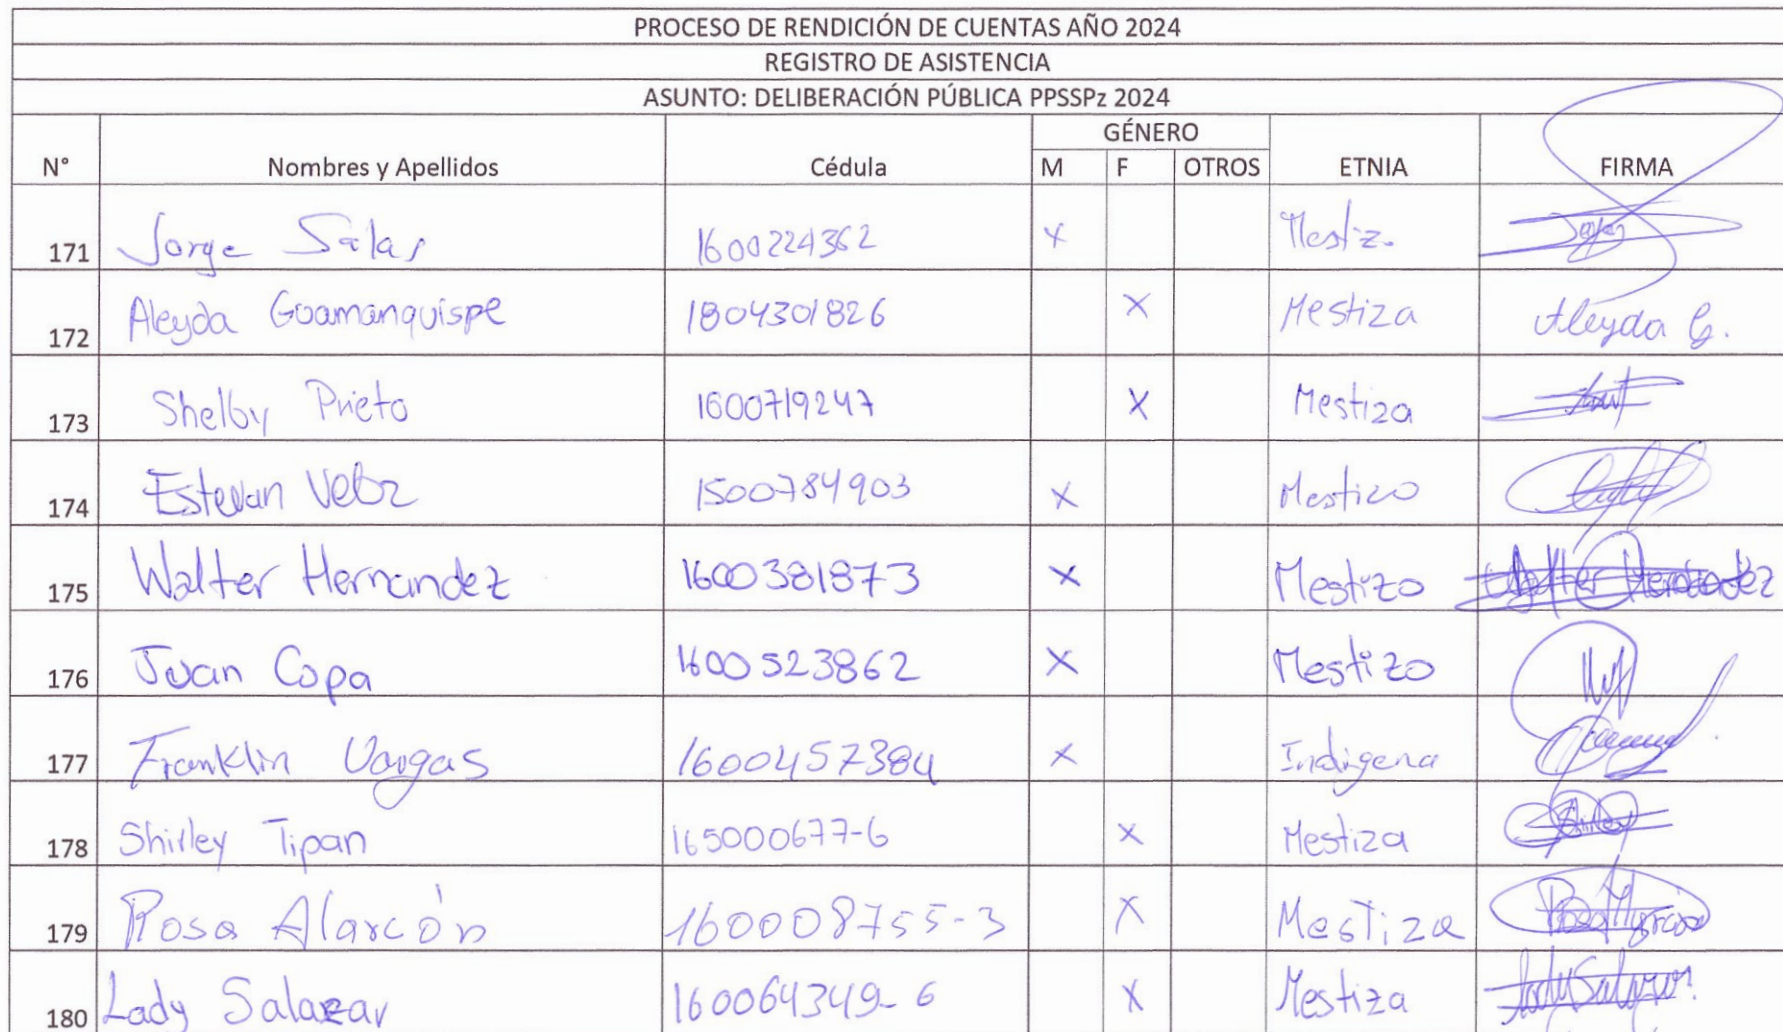 PROCESO DE RENDICIÓN DE CUENTAS AÑO 2024
REGISTRO DE ASISTENCIA
ASUNTO: DELIBERACIÓN PÚBLICA PPSSPz 2024
GÉNERO
N° Nombres y Apellidos Cédula M F OTROS ETNIA FIRMA
171 Jorge Salas 1600224362 X Mestizo
172 Aleyda Guamanquispe 1804301826 X Mestiza Aleyda G.
173 Shelby Prieto 1600719247 X Mestiza
174 Estevan Veloz 1500784903 X Mestizo
175 Walter Hernandez 1600381873 X Mestizo Walter Hernandez
176 Juan Copa 1600523862 X Mestizo
177 Franklin Vargas 1600457384 X Indigena
178 Shirley Tipan 165000677-6 X Mestiza Shirley
179 Rosa Alarcón 160008755-3 X Mestiza
180 Lady Salazar 160064349-6 X Mestiza Lady Salazar